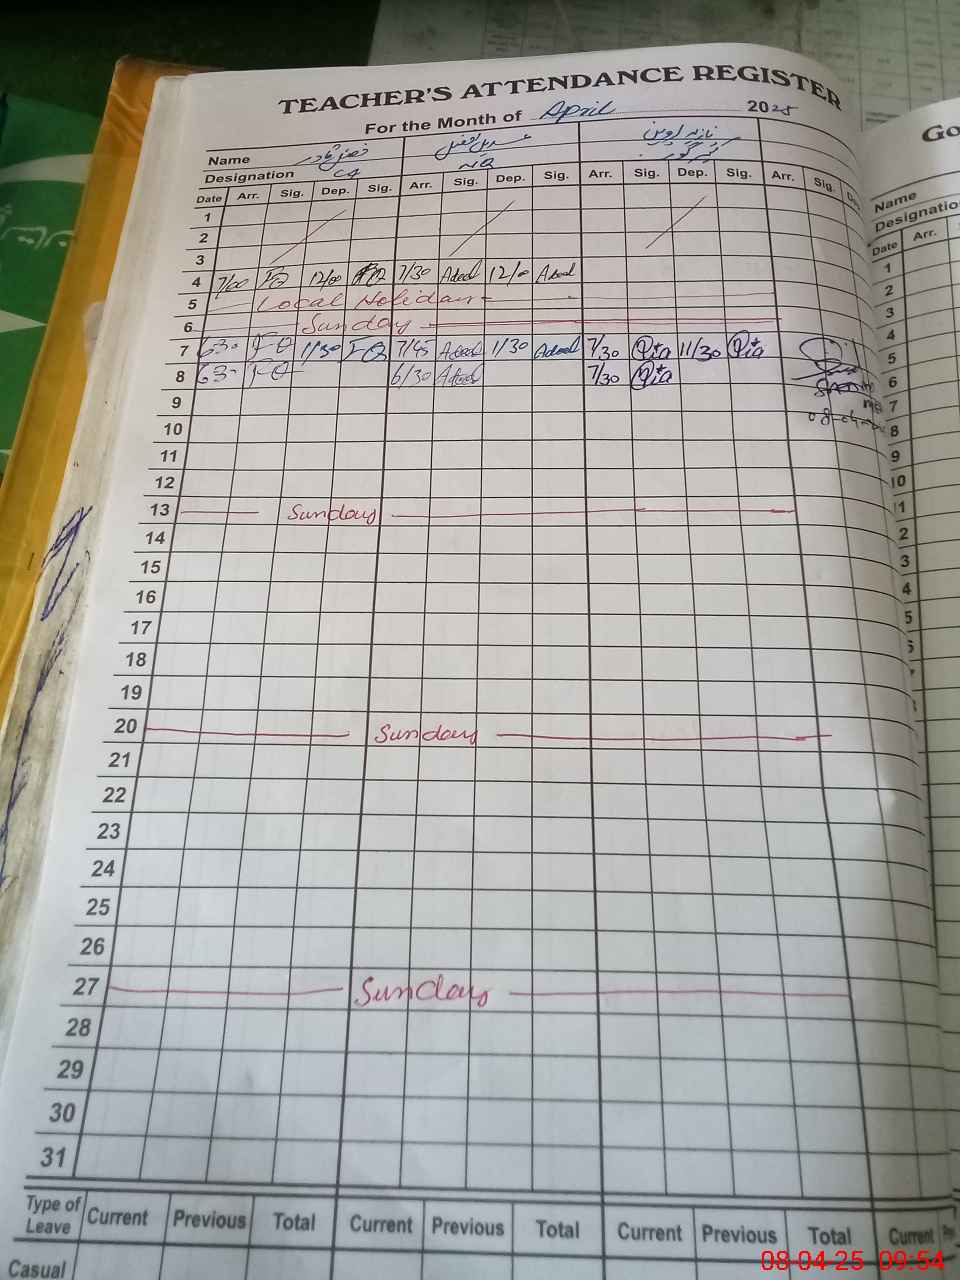 TEACHER'S ATTENDANCE REGISTER
For the Month of April 2025
Name
Designation C4 NQ
Date Arr. Sig. Dep. Sig. Arr. Sig. Dep. Sig. Arr. Sig. Dep. Sig. Arr. Sig.
1
2
3
4 7/00 FQ 12/00 FQ 7/30 Adeel 12/00 Adeel
5 Local Holiday
6 Sunday
7 630 FQ 1/30 FQ 7/45 Adeel 1/30 Adeel 7/30 11/30
8 63- FQ 6/30 Adeel 7/30
9
10
11
12
13 Sunday
14
15
16
17
18
19
20 Sunday
21
22
23
24
25
26
27 Sunday
28
29
30
31
Type of Leave Current Previous Total Current Previous Total Current Previous Total Current
Casual
Go
Name
Designatio
Date Arr.
1
2
3
4
5
6
7
8
9
10
11
2
3
4
5
08-04-25 09:54